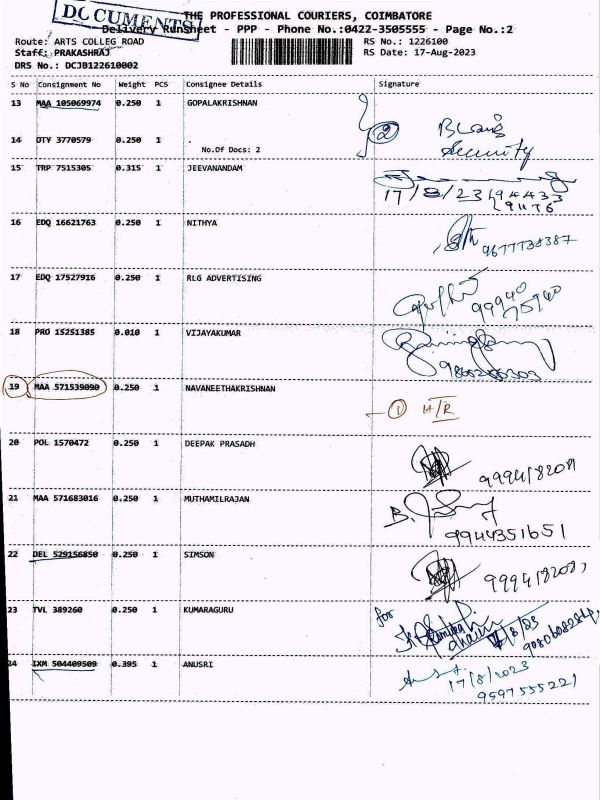 DOCUMENTS
THE PROFESSIONAL COURIERS, COIMBATORE
Delivery Runsheet - PPP - Phone No.:0422-3505555 - Page No.:2
Route: ARTS COLLEG ROAD
RS No.: 1226100
Staff: PRAKASHRAJ
RS Date: 17-Aug-2023
DRS No.: DCJB122610002
S No Consignment No Weight PCS Consignee Details Signature
13 MAA 105069974 0.250 1 GOPALAKRISHNAN
2
14 DTY 3770579 0.250 1 .
No.Of Docs: 2
Security
15 TRP 7515305 0.315 1 JEEVANANDAM
17/8/23 94433
16 EDQ 16621763 0.250 1 NITHYA
9677738387
17 EDQ 17527916 0.250 1 RLG ADVERTISING
99940
75940
18 PRO 15251385 0.010 1 VIJAYAKUMAR
19 MAA 571539090 0.250 1 NAVANEETHAKRISHNAN
1 H/R
20 POL 1570472 0.250 1 DEEPAK PRASADH
21 MAA 571683016 0.250 1 MUTHAMILRAJAN
B.
9944351651
22 DEL 529156850 0.250 1 SIMSON
23 TVL 389260 0.250 1 KUMARAGURU
for
24 IXM 504409509 0.395 1 ANUSRI
17/8/2023
9597555221